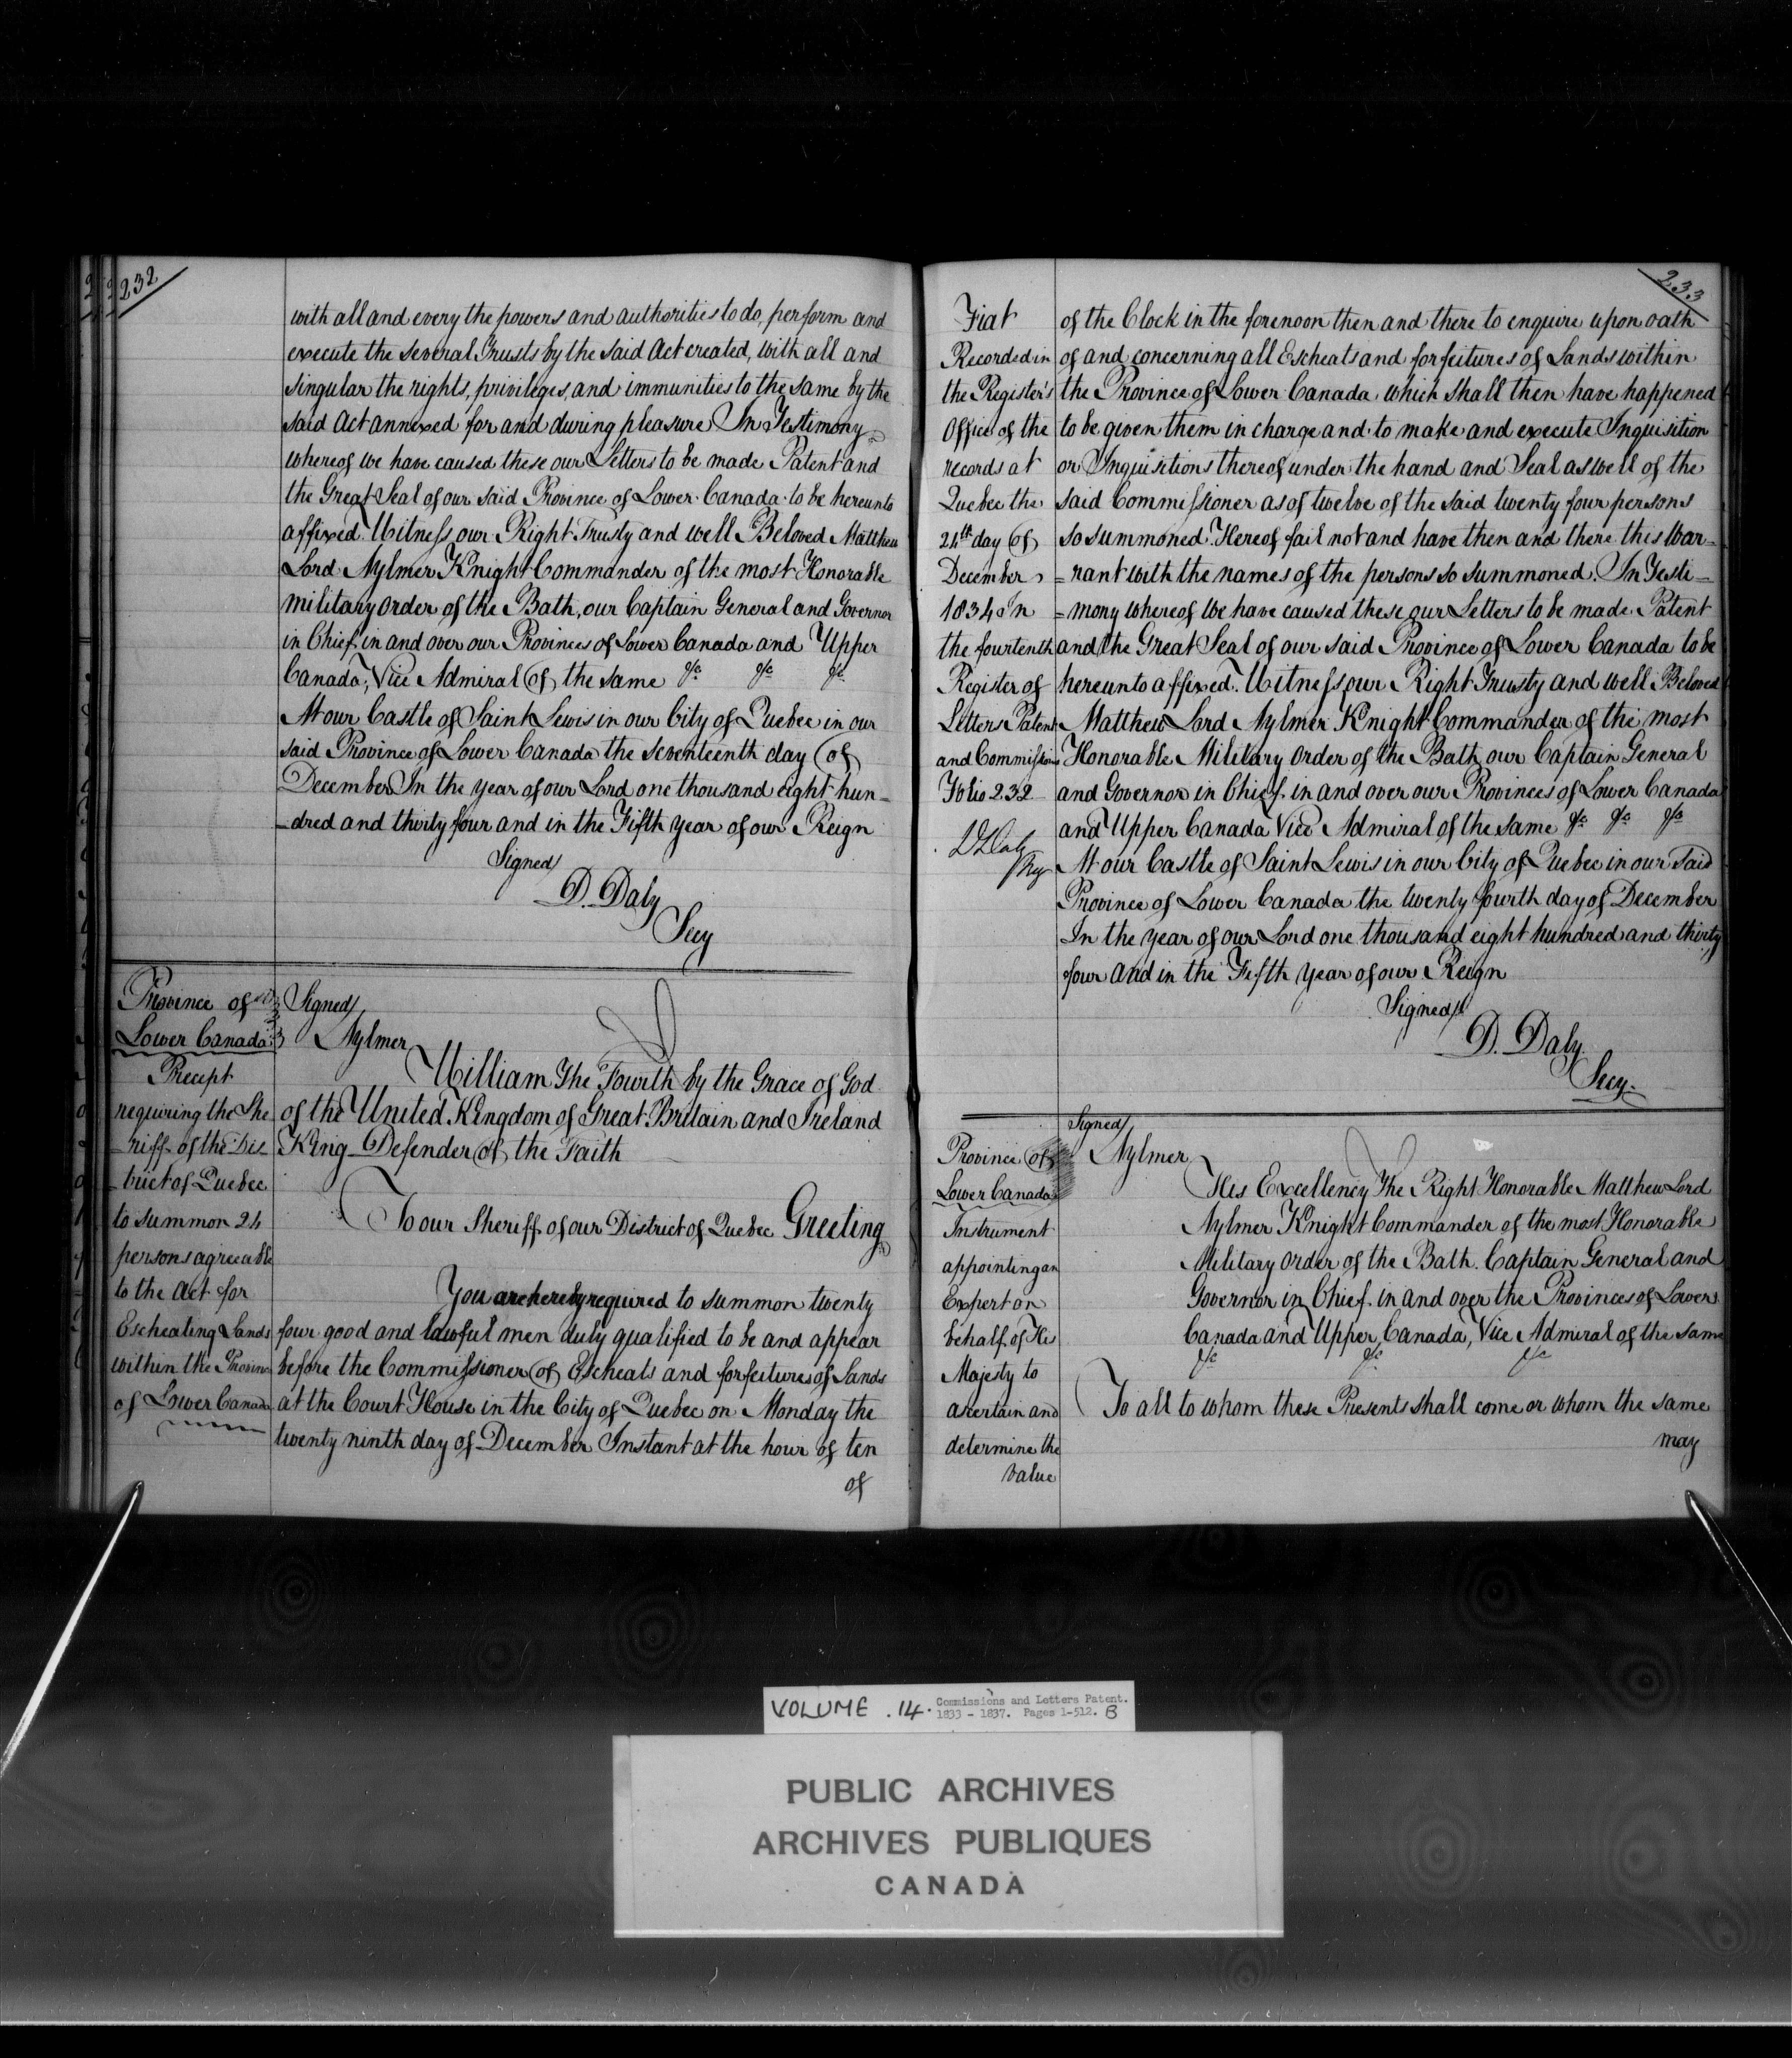 232
with all and every the powers and authorities to do, perform and
execute the several Trusts by the said Act created, with all and
singular the rights, privileges, and immunities to the same by the
said Act annexed for and during pleasure In Testimony
whereof we have caused these our Letters to be made Patent and
the Great Seal of our said Province of Lower Canada to be hereunto
affixed. Witness our Right Trusty and well Beloved Matthew
Lord Aylmer Knight Commander of the most Honorable
military order of the Bath, our Captain General and Governor
in Chief in and over our Provinces of Lower Canada and Upper
Canada, Vice Admiral of the same &c &c &c
At our Castle of Saint Lewis in our City of Quebec in our
said Province of Lower Canada the seventeenth day of
December In the year of our Lord one thousand eight hun-
-dred and thirty four and in the Fifth year of our Reign
Signed/
D. Daly
Secy
Province of
Lower Canada
Precept
requiring the She
-riff of the Dis
-trict of Quebec
to summon 24
persons agreeable
to the Act for
Escheating Lands
within the Province
of Lower Canada
Signed/
Aylmer
William The Fourth by the Grace of God
of the United Kingdom of Great Britain and Ireland
King Defender of the Faith
To our Sheriff of our District of Quebec Greeting
You are hereby required to summon twenty
four good and lawful men duly qualified to be and appear
before the Commissioner of Escheats and forfeitures of Lands
at the Court House in the City of Quebec on Monday the
twenty ninth day of December Instant at the hour of ten
of
233
Fiat
Recorded in
the Register's
Office of the
records at
Quebec the
24th day of
December
1834 In
the fourtenth
Register of
Letters Patent
and Commissions
Folio 232
D Daly
Reg
of the Clock in the forenoon then and there to enquire upon oath
of and concerning all Escheats and forfeitures of Lands within
the Province of Lower Canada which shall then have happened
to be given them in charge and to make and execute Inquisition
or Inquisitions thereof under the hand and Seal as well of the
said Commissioner as of twelve of the said twenty four persons
so summoned. Hereof fail not and have then and there this War=
=rant with the names of the persons so summoned. In Testi-
=mony whereof we have caused these our Letters to be made Patent
and the Great Seal of our said Province of Lower Canada to be
hereunto affixed. Witness our Right Trusty and well Beloved
Matthew Lord Aylmer Knight Commander of the most
Honorable Military order of the Bath our Captain General
and Governor in Chief in and over our Provinces of Lower Canada
and Upper Canada Vice Admiral of the same &c &c &c
At our Castle of Saint Lewis in our City of Quebec in our said
Province of Lower Canada the twenty fourth day of December
In the year of our Lord one thousand eight hundred and thirty
four and in the Fifth year of our Reign
Signed/
D. Daly
Secy
Province of
Lower Canada
Instrument
appointing an
Expert on
behalf of His
Majesty to
ascertain and
determine the
value
Signed/
Aylmer
His Excellency The Right Honorable Matthew Lord
Aylmer Knight Commander of the most Honorable
Military order of the Bath. Captain General and
Governor in Chief in and over the Provinces of Lower
Canada and Upper Canada, Vice Admiral of the same
&c &c &c
To all to whom these Presents shall come or whom the same
may
VOLUME . 14. Commissions and Letters Patent.
1833 - 1837. Pages 1-512. B
PUBLIC ARCHIVES
ARCHIVES PUBLIQUES
CANADA